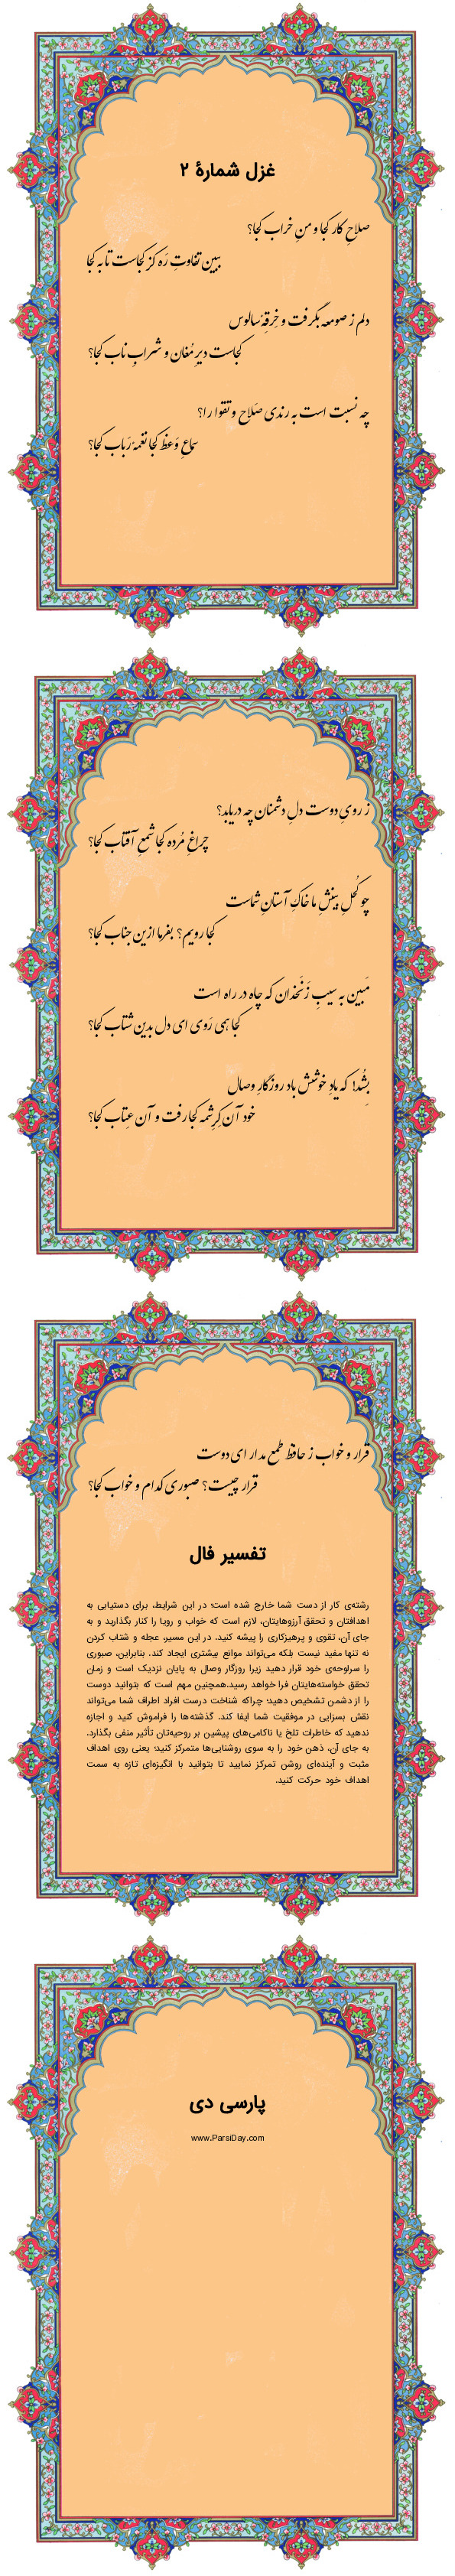 غزل شمارهٔ ۲
صلاحِ کار کجا و منِ خراب کجا؟
ببین تفاوتِ رَه کز کجاست تا به کجا
دلم ز صومعه بگرفت و خِرقهٔ سالوس
کجاست دیرِ مُغان و شرابِ ناب کجا؟
چه نسبت است به رندی صَلاح و تقوا را؟
سماعِ وَعظ کجا نغمهٔ رَباب کجا؟
ز رویِ دوست دلِ دشمنان چه دریابد؟
چراغِ مُرده کجا شمعِ آفتاب کجا؟
چو کُحلِ بینشِ ما خاکِ آستانِ شماست
کجا رویم؟ بفرما ازین جناب کجا؟
مَبین به سیبِ زَنَخدان که چاه در راه است
کجا همی رَوی ای دل بدین شتاب کجا؟
بِشُد! که یادِ خوشش باد روزگارِ وصال
خود آن کِرِشمه کجا رفت و آن عِتاب کجا؟
قرار و خواب ز حافظ طمع مدار ای دوست
قرار چیست؟ صبوری کدام و خواب کجا؟
تفسیر فال
رشته‌ی کار از دست شما خارج شده است؛ در این شرایط، برای دستیابی به
اهدافتان و تحقق آرزوهایتان، لازم است که خواب و رویا را کنار بگذارید و به
جای آن، تقوی و پرهیزکاری را پیشه کنید. در این مسیر، عجله و شتاب کردن
نه تنها مفید نیست بلکه می‌تواند موانع بیشتری ایجاد کند. بنابراین، صبوری
را سرلوحه‌ی خود قرار دهید زیرا روزگار وصال به پایان نزدیک است و زمان
تحقق خواسته‌هایتان فرا خواهد رسید.همچنین مهم است که بتوانید دوست
را از دشمن تشخیص دهید؛ چراکه شناخت درست افراد اطراف شما می‌تواند
نقش بسزایی در موفقیت شما ایفا کند. گذشته‌ها را فراموش کنید و اجازه
ندهید که خاطرات تلخ یا ناکامی‌های پیشین بر روحیه‌تان تأثیر منفی بگذارد.
به جای آن، ذهن خود را به سوی روشنایی‌ها متمرکز کنید؛ یعنی روی اهداف
مثبت و آینده‌ای روشن تمرکز نمایید تا بتوانید با انگیزه‌ای تازه به سمت
اهداف خود حرکت کنید.
پارسی دی
www.ParsiDay.com